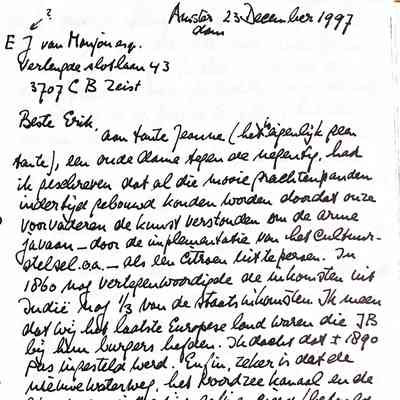 Amster 23 December 1997
dam
?
E J van Monjou esq.
Verlengde slotlaan 43
3707 CB Zeist
Beste Erik,
aan tante Jeanne (het is eigenlijk geen
tante), een oude dame tegen de negentig, had
ik geschreven dat al die mooie grachtenpanden
indertijd gebouwd konden worden doordat onze
voorvaderen de kunst verstonden om de arme
Javaan – door de implementatie van het Cultuur-
stelsel o.a. – als een Citroen uit te persen. In
1860 nog vertegenwoordigde de inkomsten uit
Indië nog 1/3 van de Staatsinkomsten. Ik meen
dat wij het laatste Europese land waren die IB
bij hun burgers heften. Ik dacht dat ± 1890
pas ingesteld werd. Enfin, zeker is dat de
nieuwe waterweg, het Noordzee kanaal en de